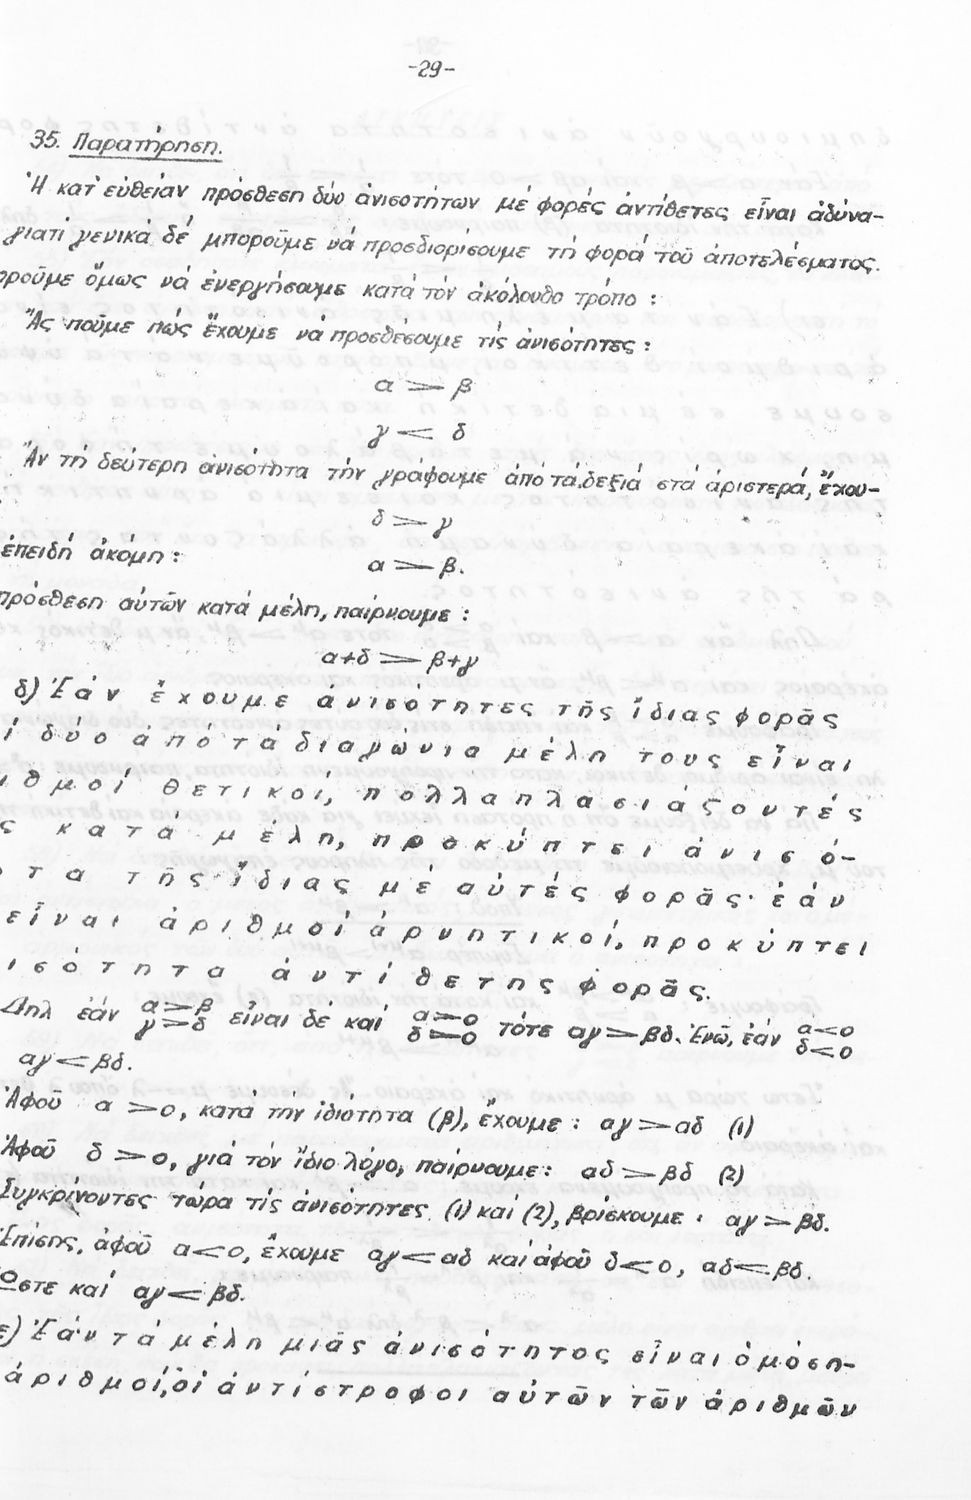 -29-
35. Παρατήρηση.
Ἡ κατ' εὐθείαν πρόσθεση δύο ἀνισοτήτων μέ φορές ἀντίθετες εἶναι ἀδύνα-
γιατί γενικά δέ μποροῦμε νά προσδιορίσουμε τή φορά τοῦ ἀποτελέσματος.
ροῦμε ὅμως νά ἐνεργήσουμε κατά τόν ἀκόλουθο τρόπο :
Ἄς ποῦμε πώς ἔχουμε να προσθέσουμε τίς ἀνισότητες :
α > β
γ < δ
Ἄν τή δεύτερη ἀνισότητα τήν γράφουμε ἀπό τά δεξιά στά ἀριστερά, ἔχου-
δ > γ
ἐπειδή ἀκόμη :
α > β.
πρόσθεση αὐτῶν κατά μέλη, παίρνουμε :
α+δ > β+γ
δ) Ἐάν ἔχουμε ἀνισότητες τῆς ἴδιας φορᾶς
ί δύο ἀπό τά διαγώνια μέλη τους εἶναι
ιθμοί θετικοί, πολλαπλασιάζοντές
ς κατά μέλη, προκύπτει ἀνισό-
τα τῆς ἴδιας μέ αὐτές φορᾶς· ἐάν
εἶναι ἀριθμοί ἀρνητικοί, προκύπτει
ισότητα ἀντίθετης φορᾶς.
Δηλ ἐάν α>β γ>δ εἶναι δε καί α>0 δ>0 τότε αγ > βδ. Ἐνῶ, ἐάν α<0 δ<0
αγ < βδ.
Ἀφοῦ α > 0, κατά την ἰδιότητα (β), ἔχουμε : αγ > αδ (1)
Ἀφοῦ δ > 0, γιά τόν ἴδιο λόγο, παίρνουμε : αδ > βδ (2)
Συγκρίνοντες τώρα τίς ἀνισότητες (1) καί (2), βρίσκουμε : αγ > βδ.
Ἐπίσης, ἀφοῦ α<0, ἔχουμε αγ < αδ καί ἀφοῦ δ<0, αδ < βδ.
Ὥστε καί αγ < βδ.
ε) Ἐάν τά μέλη μιᾶς ἀνισότητος εἶναι ὁμόση-
ἀριθμοί, οἱ ἀντίστροφοι αὐτῶν τῶν ἀριθμῶν